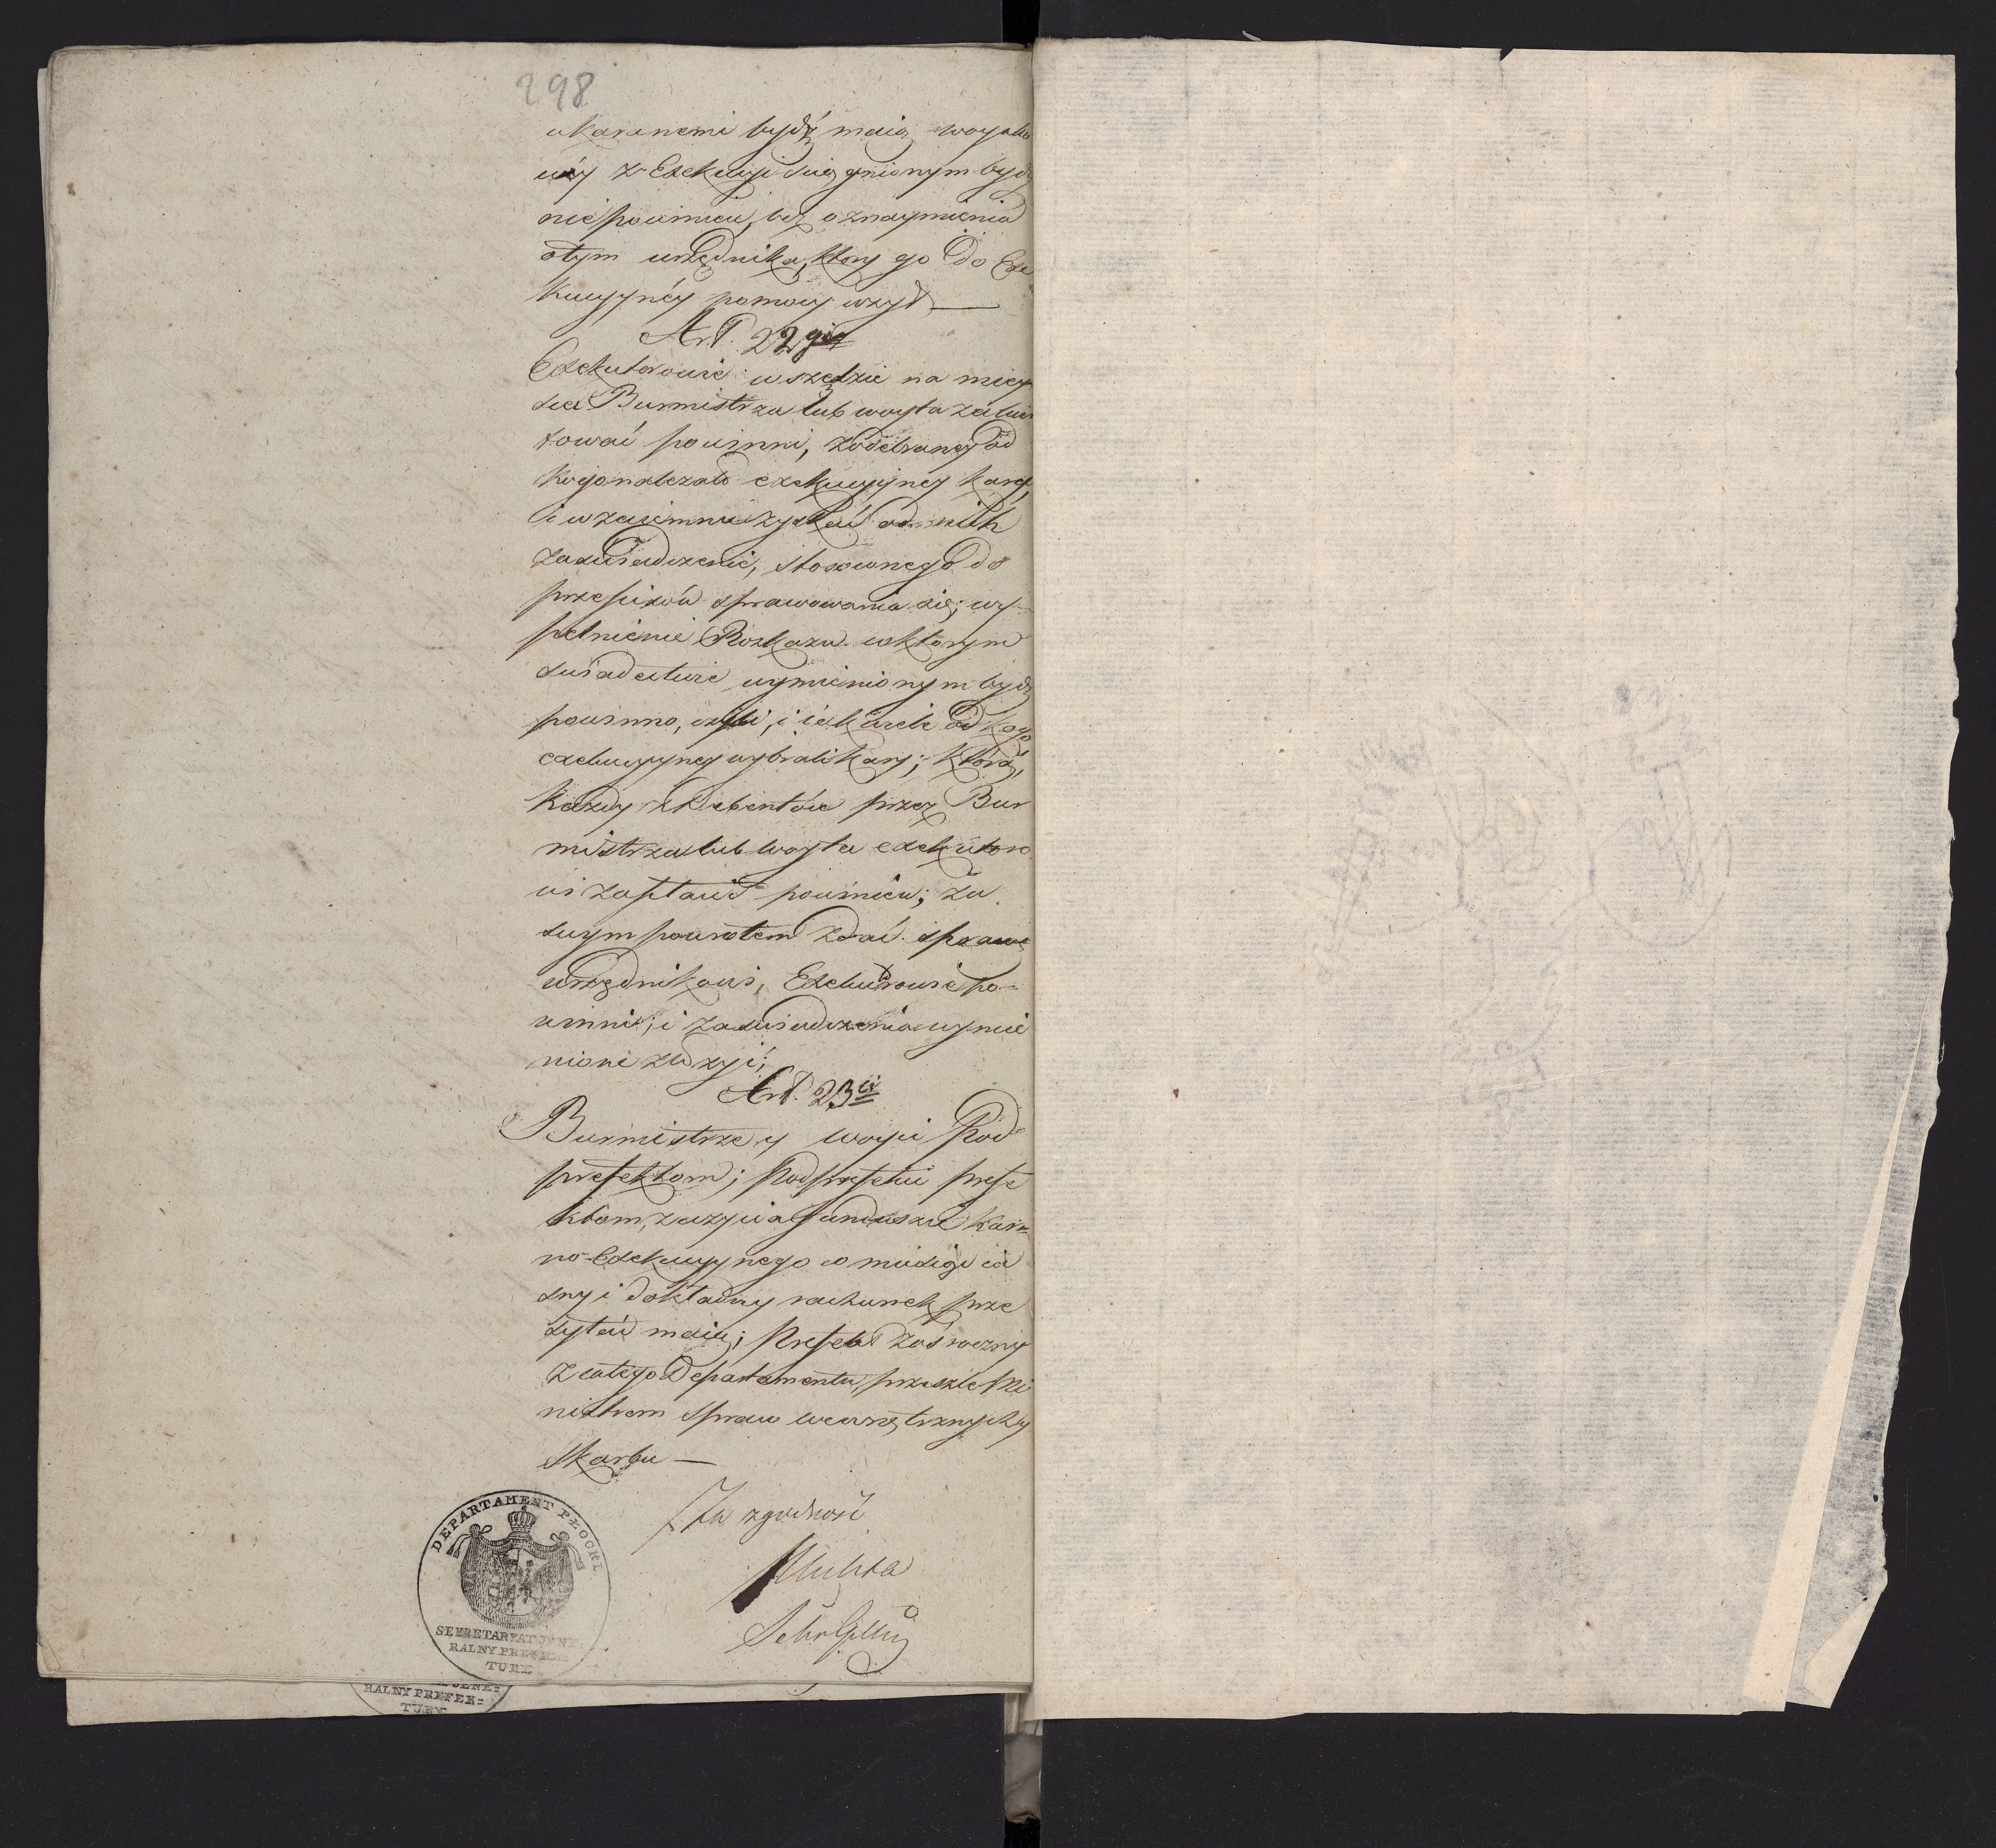 298
ukaranemi bydź maią woysko
wéy z Exekucyi ściągnionym bydź
nie powinien, bez oznaymienia
o tym urzędnika, ktory go do Exe
kucyynéy pomocy użył —
Art. 22gi
Exekutorowie wszędzie na miey
scu Burmistrza lub woyta zakwi
tować powinni, z odebraney od
kogo należało exekucyiney kary,
i wzaiemnie zyskać od nich
zaświadczenie, stosownego do
przepisów sprawowania się; wy-
pełnienie Rozkazu w ktorym
świadectwie wymienionym bydź
powinno, czyli, i iak wiele od kogo
exekucyyney wybrali kary; ktorą,
każdy z Debentów przez Bur
mistrza lub Woyta exekutoro
wi zapłacić powinien; za
swym powrotem zdać sprawę
urzędnikowi, Exekutorowie po-
winni; i zaświadczenia wymie
nione złożyć;
Art. 23ci
Burmistrze y woyci Pod
prefektom; Podprefekci prefe
ktom, z użycia funduszu Kar-
no-Exekucyynego co miesiąc ia
sny i dokładny rachunek prze
syłać maią; Prefekt zaś roczny
z całego Departamentu, prześzle Mi
nistrom Spraw wewnętrznych y
Skarbu —
Za zgodność
DEPARTAMENT PŁOCKI
SEKRETARYAT JENE-
RALNY PREFEK=
TURY
JENE=
RALNY PREFEK=
TURY